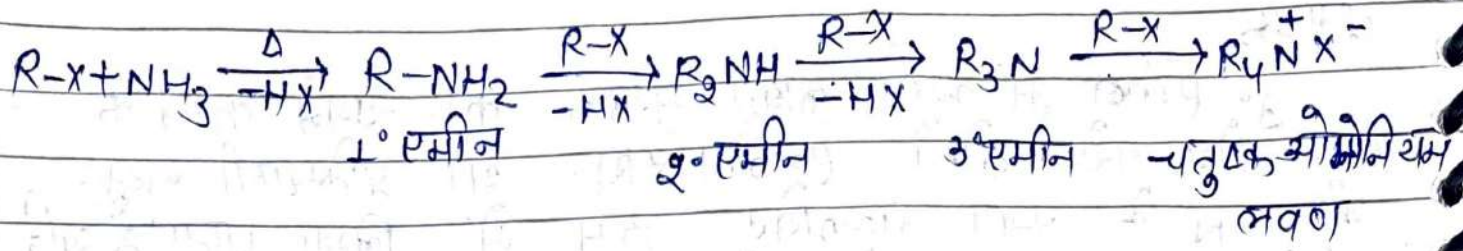 R-X+NH₃ —Δ/-HX→ R-NH₂ —R-X/-HX→ R₂NH —R-X/-HX→ R₃N —R-X→ R₄N⁺X⁻
1° एमीन 2° एमीन 3° एमीन चतुष्क अमोनियम
लवण